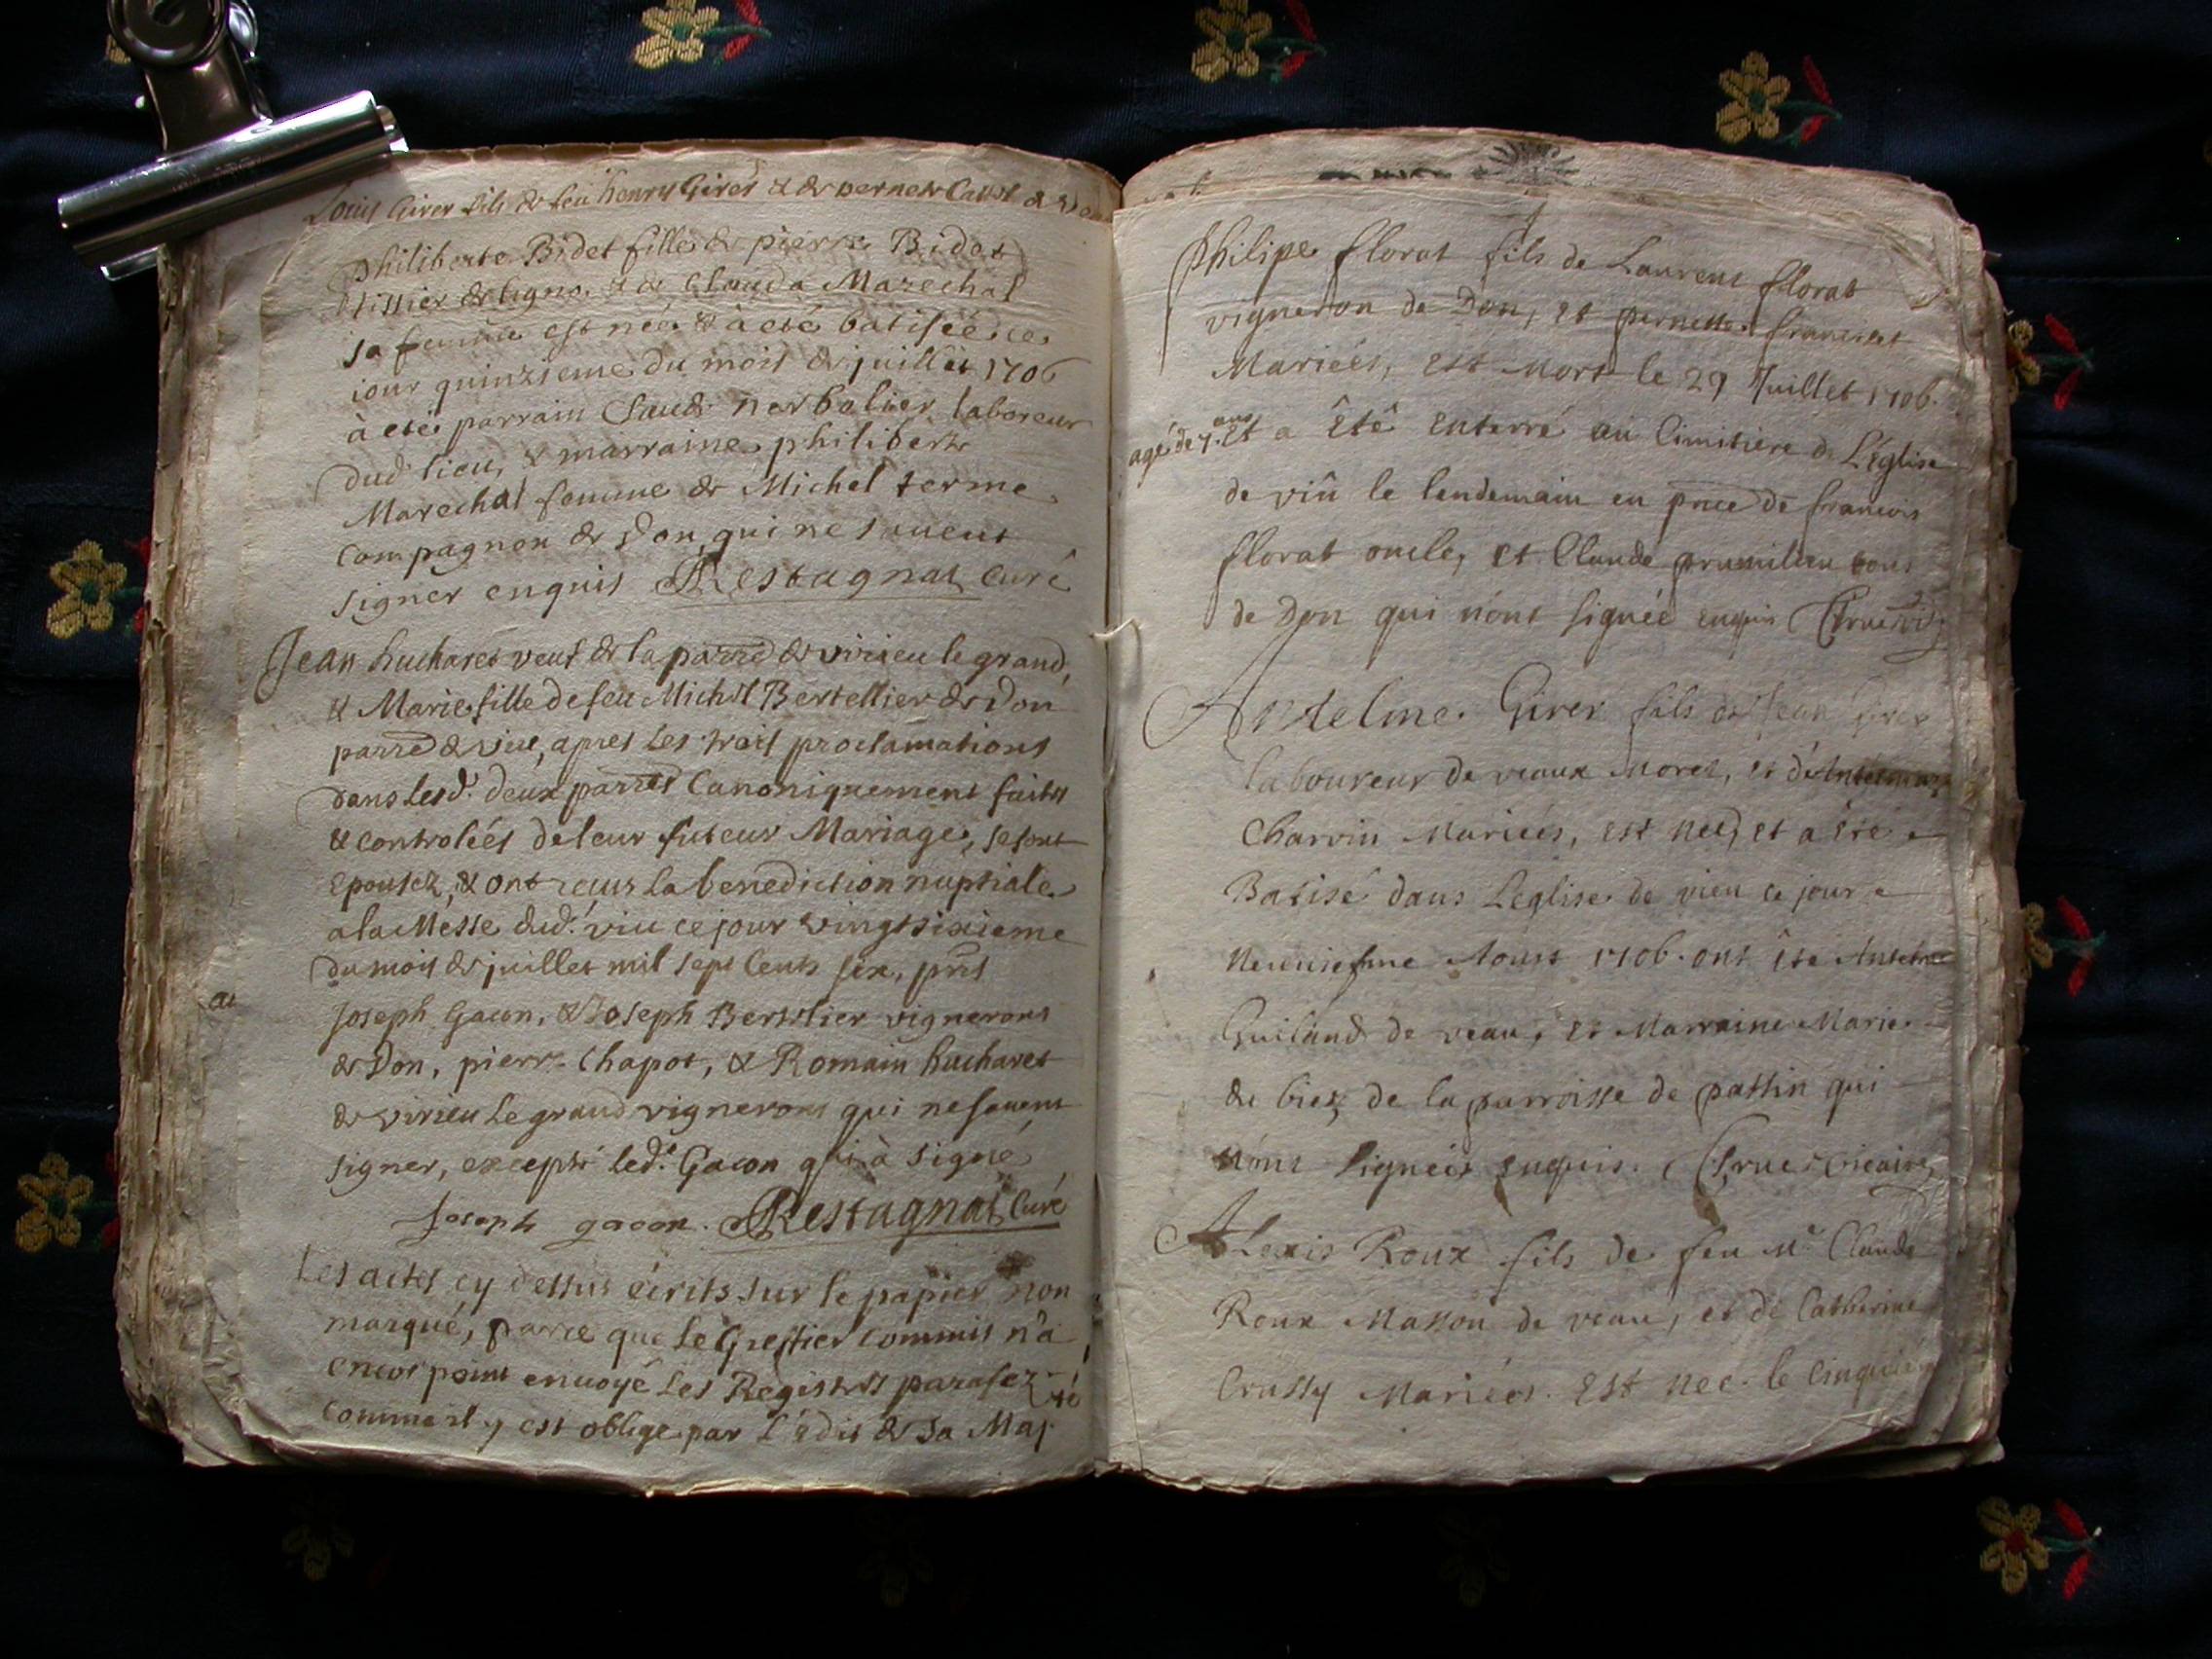 Louis Girer fils de feu henry Girer & de pernete
Philiberte Bidet fille de pierre Bidet
Tissier de ligno. & de Clauda Mareschal
sa femme est née & à eté batisée ce
jour quinzieme du mois de juillet 1706
à eté parrain Claude nerbolier laboreur
dud. lieu, & marraine philiberte
Marechal femme de Michel terme
compagnon de Don, qui ne scauent
signer enquis Restagnat Curé
Jean hucharet veuf de la parre de virieu le grand,
& Marie fille de feu Michel Bertellier de Don
parre de viu, apres les trois proclamations
dans lesd. deux parres Canoniquement faites
& controlées de leur futeur Mariage, se sont
epousez, & ont reçus la benediction nuptiale
a la Messe dud. viu ce jour vingtsixieme
du mois de juillet mil sept Cents six, pnts
Joseph Gacon, & Joseph Bertelier vignerons
de Don, pierre Chapot, & Romain hucharet
de virieu le grand vignerons qui ne sauent
signer, excepté led. Gacon qui à signé
Joseph gacon. Restagnat Curé
Les actes cy dessus écrits sur le papier non
marqué, parce que le Greffier commis n'a
encor point enuoyé les Registres parafez
comme il y est oblige par l'édit de sa Maj
té
Philipe florat fils de Laurent florat
vigneron de Don, et pernette francillet
Mariées, est Mort le 29 Juillet 1706.
agé de 7. ans Et a êté enterré au Cimitiere de L'église
de viû le lendemain en pnce de francois
florat oncle, et Claude prumilieu tous
de Don qui n'ont signée enquis
Antelme Girer fils de Jean Girer
laboureur de veaux Morez, et d'
Charvin Mariées, est neé, et a été
Batisé dans L'eglise de vieu ce jour
Neuuiesme Aoust 1706. ont êté Antelme
Guiland de veau, et Marraine Marie
du biez de la parroisse de passin qui
n'ont signées enquis. Vicaire
Alexis Roux fils de feu Mr Claude
Roux Masson de veau, et de Catherine
Crussy Mariées. Est neé le Cinquié